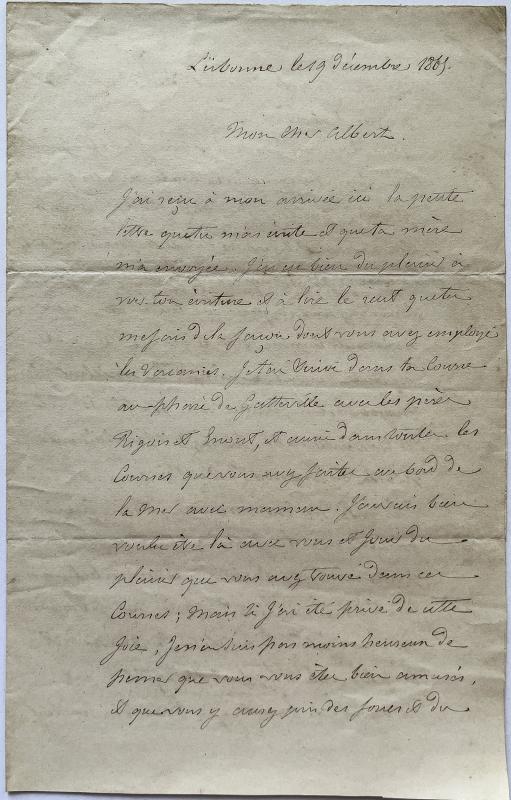 Lisbonne le 19 décembre 1865.
Mon cher Albert.
J'ai reçu à mon arrivée ici la petite
lettre que tu m'as écrite et que ta mère
m'a envoyée. J'ai eu bien du plaisir à
voir ton écriture et à lire le récit que tu
me fais de la façon dont vous avez employé
les vacances. Je t'ai suivi dans ta course
au phare de Gatteville avec les pères
et aussi dans toutes les
courses que vous avez faites au bord de
la mer avec maman. J'aurais bien
voulu être là avec vous et jouir du
plaisir que vous avez trouvé dans ces
courses; mais si j'ai été privé de cette
joie, je n'en suis pas moins heureux de
penser que vous vous êtes bien amusés,
et que vous y avez pris des forces et du